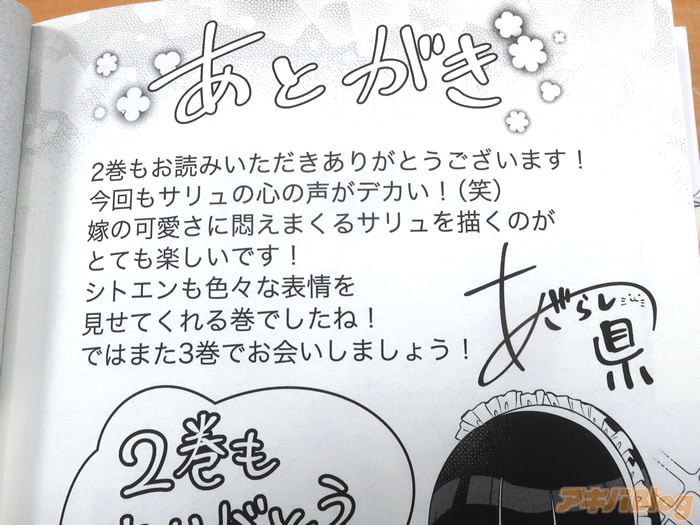 あとがき
2巻もお読みいただきありがとうございます！
今回もサリュの心の声がデカい！（笑）
嫁の可愛さに悶えまくるサリュを描くのが
とても楽しいです！
シトエンも色々な表情を
見せてくれる巻でしたね！
ではまた3巻でお会いしましょう！
あざらし県
2巻も
ありがとう
アキバBlog